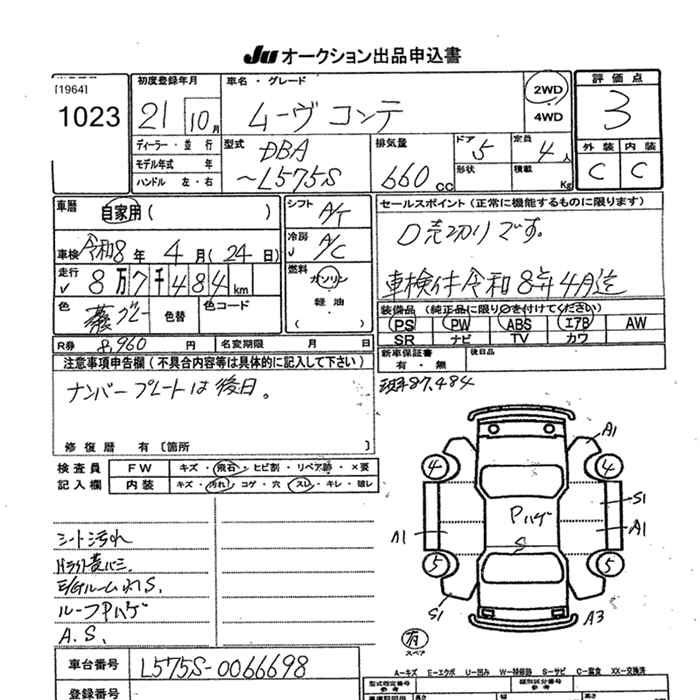 JU オークション出品申込書
[1964]
1023
初度登録年月
21 10月
車名・グレード
ムーヴ コンテ
2WD
4WD
評価点
3
ディーラー・並行
モデル年式 年
ハンドル 左・右
型式
DBA
~L575S
排気量
660 cc
ドア 5
形状
定員 4 人
積載 Kg
外装 内装
C C
車歴 自家用( )
シフト A/T
セールスポイント(正常に機能するものに限ります)
車検 令和8年 4月(24日)
冷房 A/C
売切りです。
走行 8万7千484km
燃料 ガソリン
軽油
( )
車検付令和8年4月迄
色 グレー 色替 色コード
装備品(純正品に限り○を付けてください)
PS PW ABS エアB AW
SR ナビ TV カワ
R券 8,960 円 名変期限 月 日
新車保証書 後日品
有・無
注意事項申告欄(不具合内容等は具体的に記入して下さい)
87,484
ナンバープレートは後日。
修復歴 有〔箇所 〕
検査員 FW キズ・飛石・ヒビ割・リペア跡・×要
記入欄 内装 キズ・汚れ・コゲ・穴・スレ・キレ・破レ
A1
4 4
S1
Pハゲ
A1 A1
S
5 5
S1 A3
有
スペア
シート汚れ
E/Gルーム S.
ルーフPハゲ
A.S.
A-キズ E-エクボ U-凹み W-補修跡 S-サビ C-腐食 XX-交換済
車台番号 L575S-0066698
型式指定番号 類別区分番号
登録番号